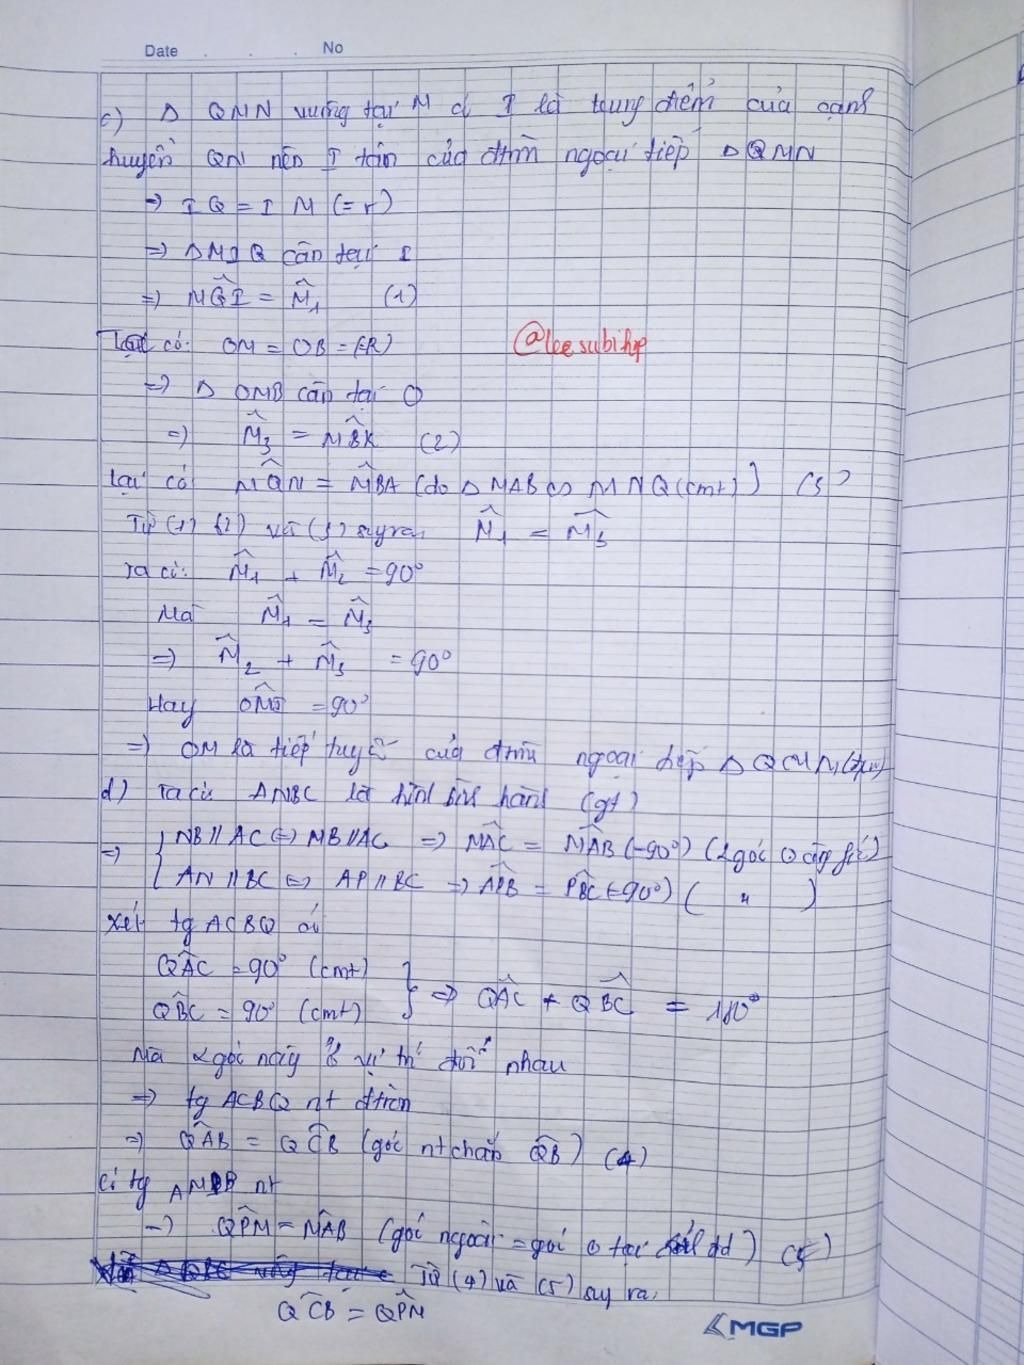 Date . . . No
c) Δ QMN vuông tại M có I là trung điểm của cạnh
huyền QN nên I tâm của đtròn ngoại tiếp Δ QMN
=> IQ = IM (= r)
=> Δ MIQ cân tại I
=> MQ̂I = M̂₁ (1)
Lại có: OM = OB = (R)
=> Δ OMB cân tại O
=> M̂₃ = MB̂K (2)
Lại có MQ̂N = MB̂A (do Δ MAB ∽ MNQ (cmt)) (3)
Từ (1) (2) và (3) suy ra M̂₁ = M̂₃
Ta có: M̂₁ + M̂₂ = 90°
Mà M̂₁ = M̂₃
=> M̂₂ + M̂₃ = 90°
Hay OM̂I = 90°
=> OM là tiếp tuyến của đtròn ngoại tiếp Δ QMN (đpcm)
d) Ta có ANBC là hình bình hành (gt)
=> { NB // AC <=> MB // AC => MÂC = MÂB (= 90°) (2 góc
AN // BC <=> AP // BC => AP̂B = PB̂C (= 90°) ( " )
Xét tg ACBQ có
QÂC = 90° (cmt)
QB̂C = 90° (cmt) } => QÂC + QB̂C = 180°
Mà 2 góc này ở vị trí đối nhau
=> tg ACBQ nt đtròn
=> QÂB = QĈB (góc nt chắn QB) (4)
Có tg nt
=> QP̂M = MÂB (góc ngoài = góc tại đỉnh đd) (5)
Từ (4) và (5) suy ra
QĈB = QP̂M
@leesubihop
MGP